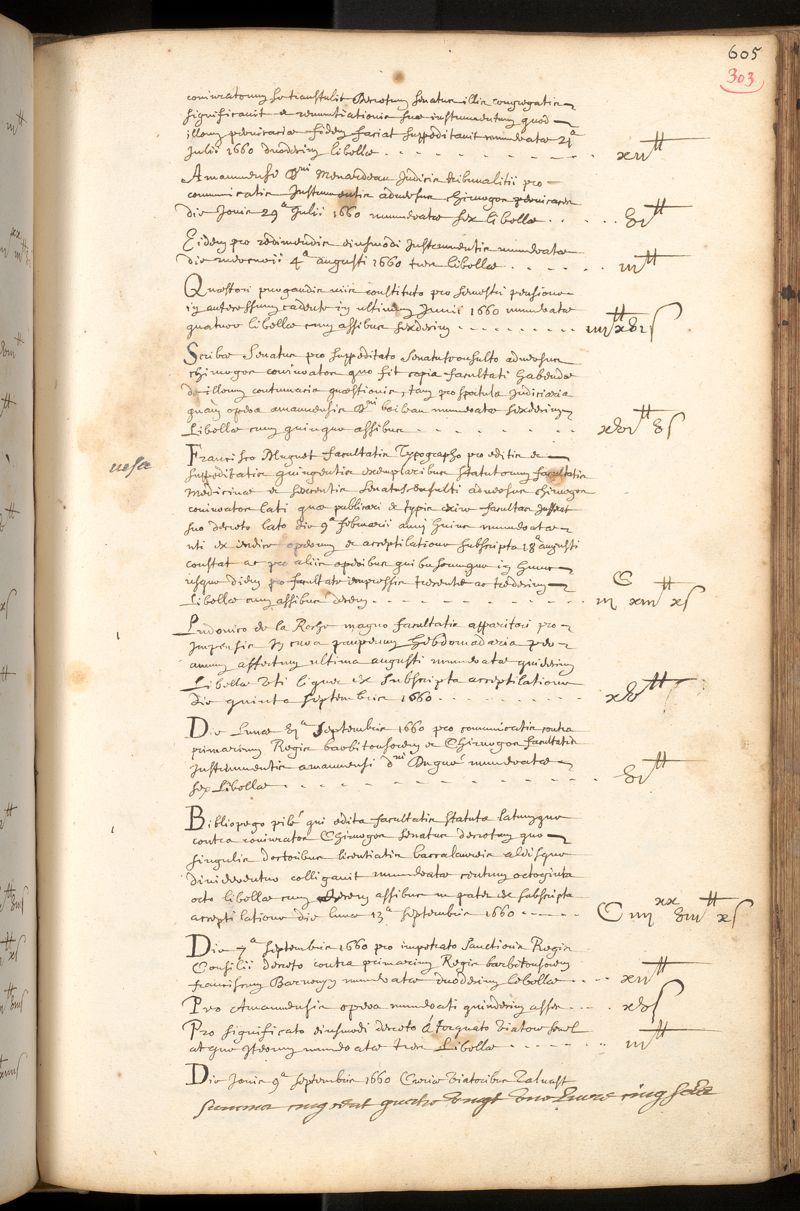 605
303
coniuratorum se transtulit Decretum Senatus illis congregatis
significauit et renuntiationis suæ instrumentum quod
illorum peruicaciæ fidem faciat suppeditauit numeratæ 21ᵃ
Julii 1660 duodecim libellæ xii tt
Amanuensi Dni Menardeau Judicis tribunalitii pro
communicatis Instrumentis aduersus chirurgos peruicaces
die Jouis 29ᵃ Julii 1660 numeratæ sex libellæ vi tt
Eidem pro redimendis eiusmodi Instrumentis numeratæ
die mercurii 4ᵃ augusti 1660 tres libellæ iii tt
Quæstori purgandis viis constituto pro semestri pensione
in antecessum cadente in ultimum Junii 1660 numeratæ
quatuor libellæ cum assibus sexdecim iiii tt xvi s
Scribæ Senatus pro suppeditato Senatusconsulto aduersus
chirurgos coniuratos quo fit copia facultati habendæ
de illorum contumacia quæstionis, tam pro sportula judiciaria
quam opera amanuensis Dni boileau numeratæ sexdecim
Libellæ cum quinque assibus xvi tt v s
uesa
Francisco Muguet facultatis Typographo pro editis et
suppeditatis quingentis exemplaribus statutorum facultatis
Medicinæ et sexcentis Senatusconsulti aduersus chirurgos
coniuratos lati quæ publicari et typis excudi facultas jussit
suo decreto lato die 9ᵃ februarii anni huius numeratæ
uti ex indice operum et acceptilatione subscripta 18ᵃ augusti
constat ac pro aliis operibus quibuscumque in hunc
usque diem pro facultate impressis trecentæ ac tredecim
Libellæ cum assibus decem iii C xiii tt x s
Ludouico de la Roche magno facultatis apparitori pro
impensis in cura pauperum hebdomadaria per
annum affectum ultima augusti numeratæ quindecim
Libellæ uti liquet ex subscripta acceptilatione
die quinta septembris 1660 xv tt
Die Lunæ 6ᵃ Septembris 1660 pro communicatis contra
primarium Regis barbitonsorem et Chirurgos facultatis
Instrumentis amanuensi dni numeratæ
sex Libellæ vi tt
Bibliopego pile' qui edita facultatis statuta latumque
contra coniuratos Chirurgos Senatus decretum quo
singulis doctoribus licentiatis baccalaureis aliisque
diuiderentur colligauit numeratæ centum octoginta
octo libellæ cum decem assibus ut patet ex subscripta
acceptilatione die lunæ 13ᵃ septembris 1660 C iiii xx viii tt x s
Die 7ᵃ Septembris 1660 pro impetrato Sanctioris Regis
Consilii decreto contra primarium Regis barbitonsorem
franciscum Barnouyn numeratæ duodecim libellæ xii tt
Pro Amanuensis opera numerati quindecim asses xv s
Pro significato eiusmodi decreto á torquato viatore semel
atque iterum numeratæ tres Libellæ iii tt
Die Jouis 9ᵃ septembris 1660 Curiæ viatoribus
Summa cinq cent quatre vingt une liures cinq solz